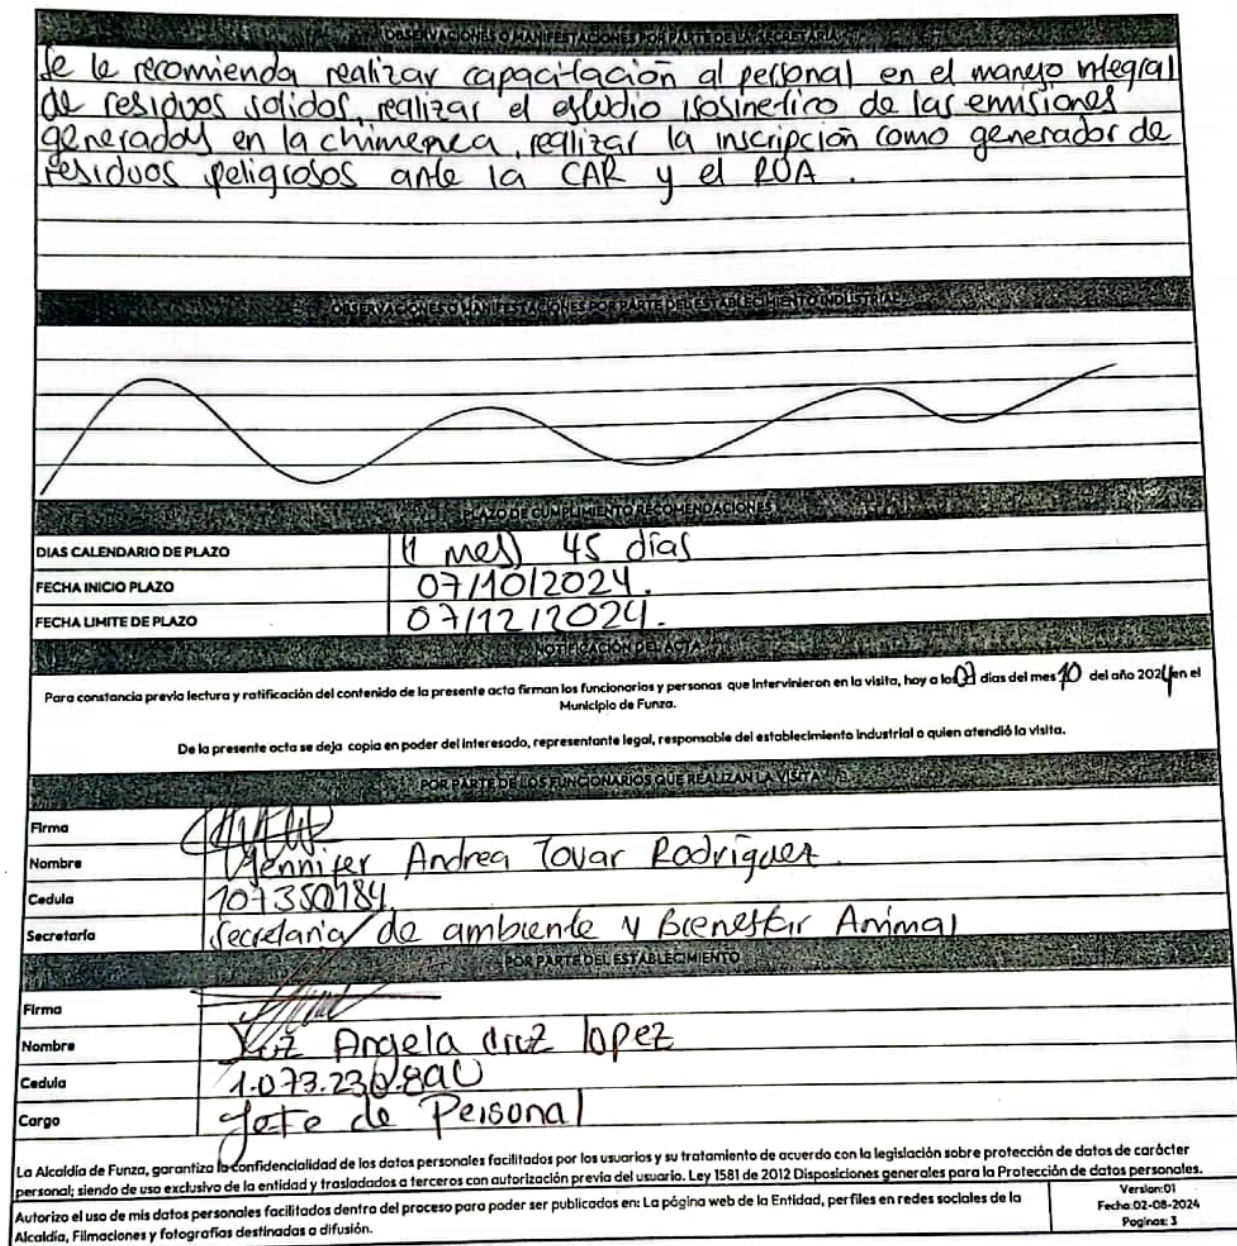 OBSERVACIONES O MANIFESTACIONES POR PARTE DE LA SECRETARIA
Se le recomienda realizar capacitación al personal en el manejo integral
de residuos solidos, realizar el estudio isosinetico de las emisiones
generadas en la chimenea, realizar la inscripción como generador de
residuos peligrosos ante la CAR y el RUA.
OBSERVACIONES O MANIFESTACIONES POR PARTE DEL ESTABLECIMIENTO INDUSTRIAL
PLAZO DE CUMPLIMIENTO RECOMENDACIONES
DIAS CALENDARIO DE PLAZO (1 mes) 45 días
FECHA INICIO PLAZO 07/10/2024.
FECHA LIMITE DE PLAZO 07/12/2024.
NOTIFICACIÓN DEL ACTA
Para constancia previa lectura y ratificación del contenido de la presente acta firman los funcionarios y personas que intervinieron en la visita, hoy a los 07 dias del mes 10 del año 2024 en el
Municipio de Funza.
De la presente acta se deja copia en poder del interesado, representante legal, responsable del establecimiento industrial o quien atendió la visita.
POR PARTE DE LOS FUNCIONARIOS QUE REALIZAN LA VISITA
Firma
Nombre Yennifer Andrea Tovar Rodriguez.
Cedula
Secretaría Secretaria de ambiente y Bienestar Animal
POR PARTE DEL ESTABLECIMIENTO
Firma
Nombre Luz Angela cruz lopez
Cedula
Cargo Jefe de Personal
La Alcaldía de Funza, garantiza la confidencialidad de los datos personales facilitados por los usuarios y su tratamiento de acuerdo con la legislación sobre protección de datos de carácter
personal; siendo de uso exclusivo de la entidad y trasladados a terceros con autorización previa del usuario. Ley 1581 de 2012 Disposiciones generales para la Protección de datos personales.
Autorizo el uso de mis datos personales facilitados dentro del proceso para poder ser publicados en: La página web de la Entidad, perfiles en redes sociales de la
Alcaldía, Filmaciones y fotografías destinadas a difusión.
Version:01
Fecha:02-08-2024
Paginas: 3